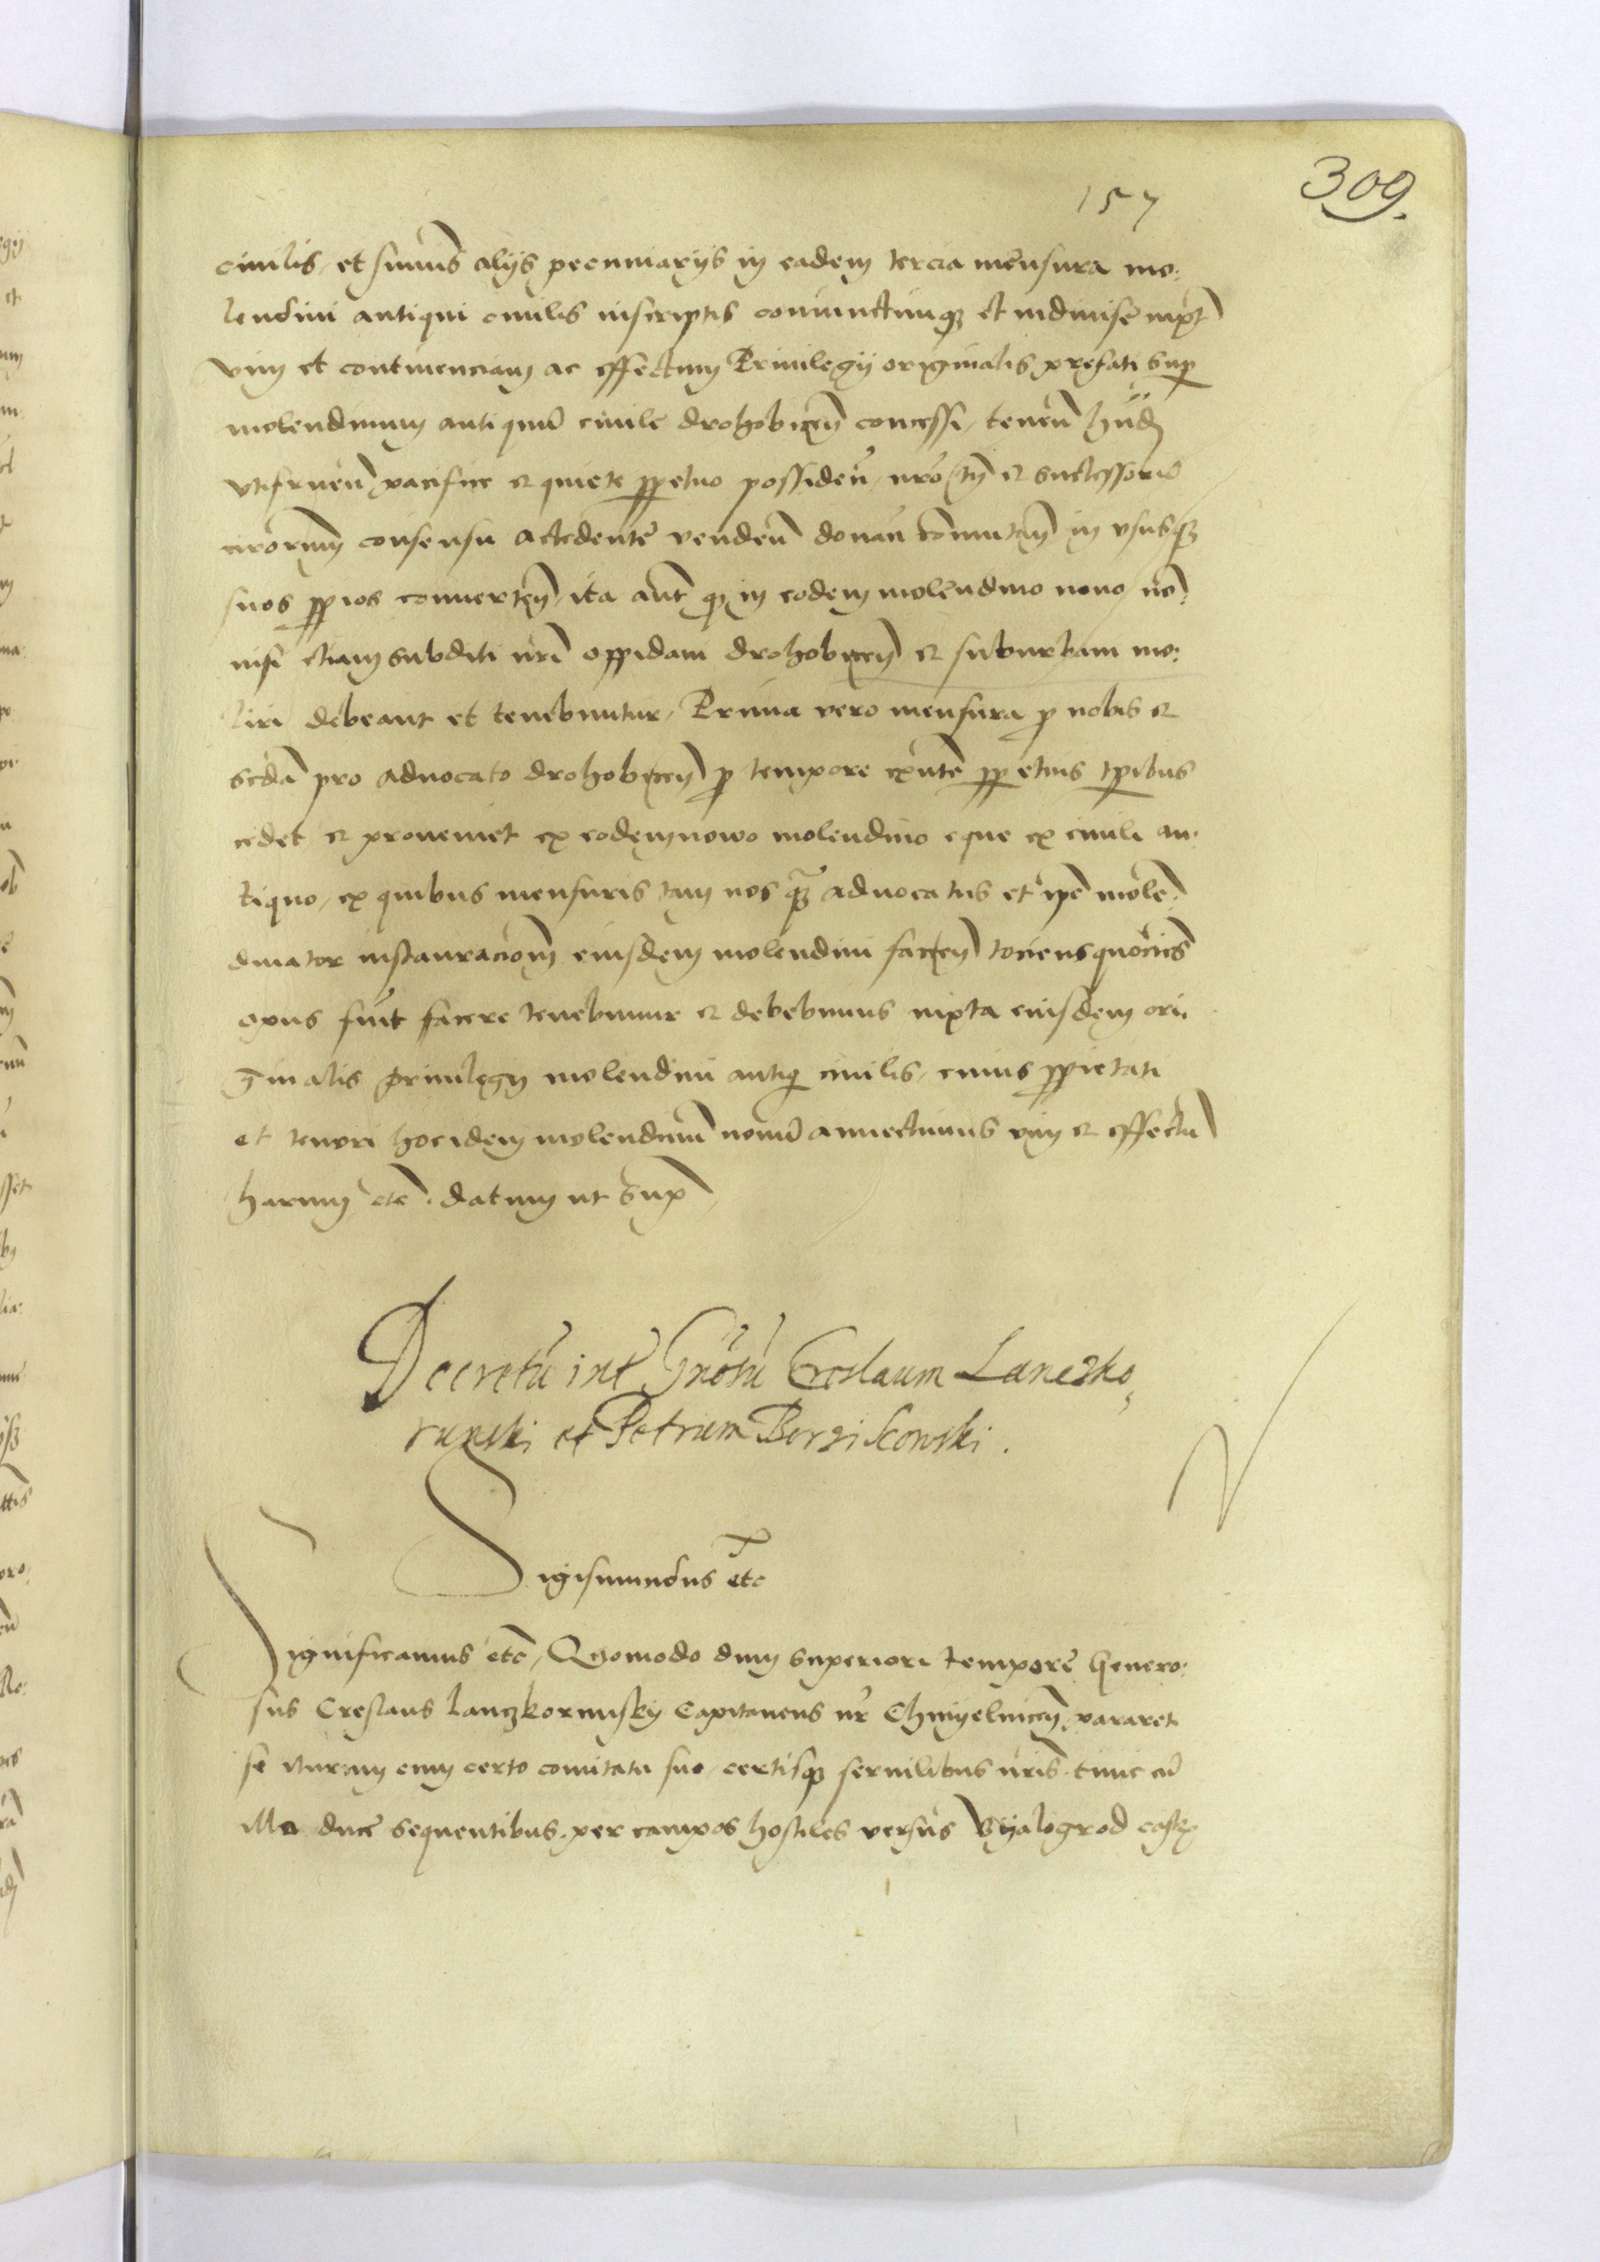 309.
157
ciuilis, et sum̄is alijs pecuniarijs in eadem tercia mensura mo:
lendini antiqui ciuilis inscriptis coniunctimqꝫ et indiuise iuxt
vim et continenciam ac effectum Priuilegij originalis prefati sup
molendinum antiquū ciuile drohobicen̄ concessi, tenen̄ hn̄d
vtifruen̄ pacifice et quiete ꝑpetuo possiden̄, nr̄o tn̄ et successorū
nr̄orum consensu accedente venden̄ donan̄ com̄utan̄ in vsusqꝫ
suos ꝓprios conuerten̄, ita aut̄ qꝫ in eodem molendino nouo no:
nisi etiam subditi nr̄i oppidani drohobicen̄ et suburbani mo:
liri debeant et tenebuntur, Prima vero mensura ꝓ nobis et
scd̄a pro aduocato drohobicen̄ ꝓ tempore exn̄te ꝑpetuis tꝑibus
cedet et proueniet ex eodem nowo molendino eque ex ciuili an:
tiquo, ex quibus mensuris tam nos qꝫ aduocatus et ip̄e molen:
dinator instauraciom̄ eiusdem molendini facien̄ tociens quociens
opus fuit facere tenebimur et debebimus iuxta eiusdem ori:
ginalis priuilegij molendini antiqi ciuilis, cuius ꝓprietati
et tenori hoc idem molendinū nouū annectimus vim et effectū
harum etc̄. datum ut sup̄
Decretū int̄ Gn̄osū Croslaum Lanczko,
runski et Petrum Borziskowski.
Sigismundus etc̄
Significamus etc̄, Quomodo dum superiori tempore Genero:
sus Creslaus Lanczkorunsky Capitaneus nr̄ Chmyelnicen̄, pararet
se iturum cum certo comitatu suo, certisqꝫ seruilibus nr̄is tunc cū
illo duce sequentibus, per campos hostiles versus Byalogrod castr